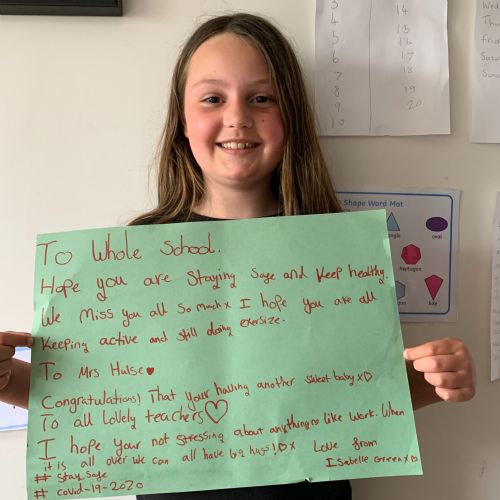 4
5
6
7
8
9
10
14
15
16
17
18
19
20
Wed
Thu
Frid
Satu
Sun
Shape Word Mat
oval
heptagon
kite
To Whole School.
Hope you are Staying Safe and Keep healthy.
We Miss you all so much x I hope you are all
Keeping active and still doing exersize.
To Mrs Hulse♥
Congratulations) That your having another sweet baby x♡
To all lovely teachers♡
I hope your not stressing about anything♡ like work. When
it is all over we can all have big hugs!♡x Love from
# Stay Safe
Isabelle Green x♡
# covid-19-2020